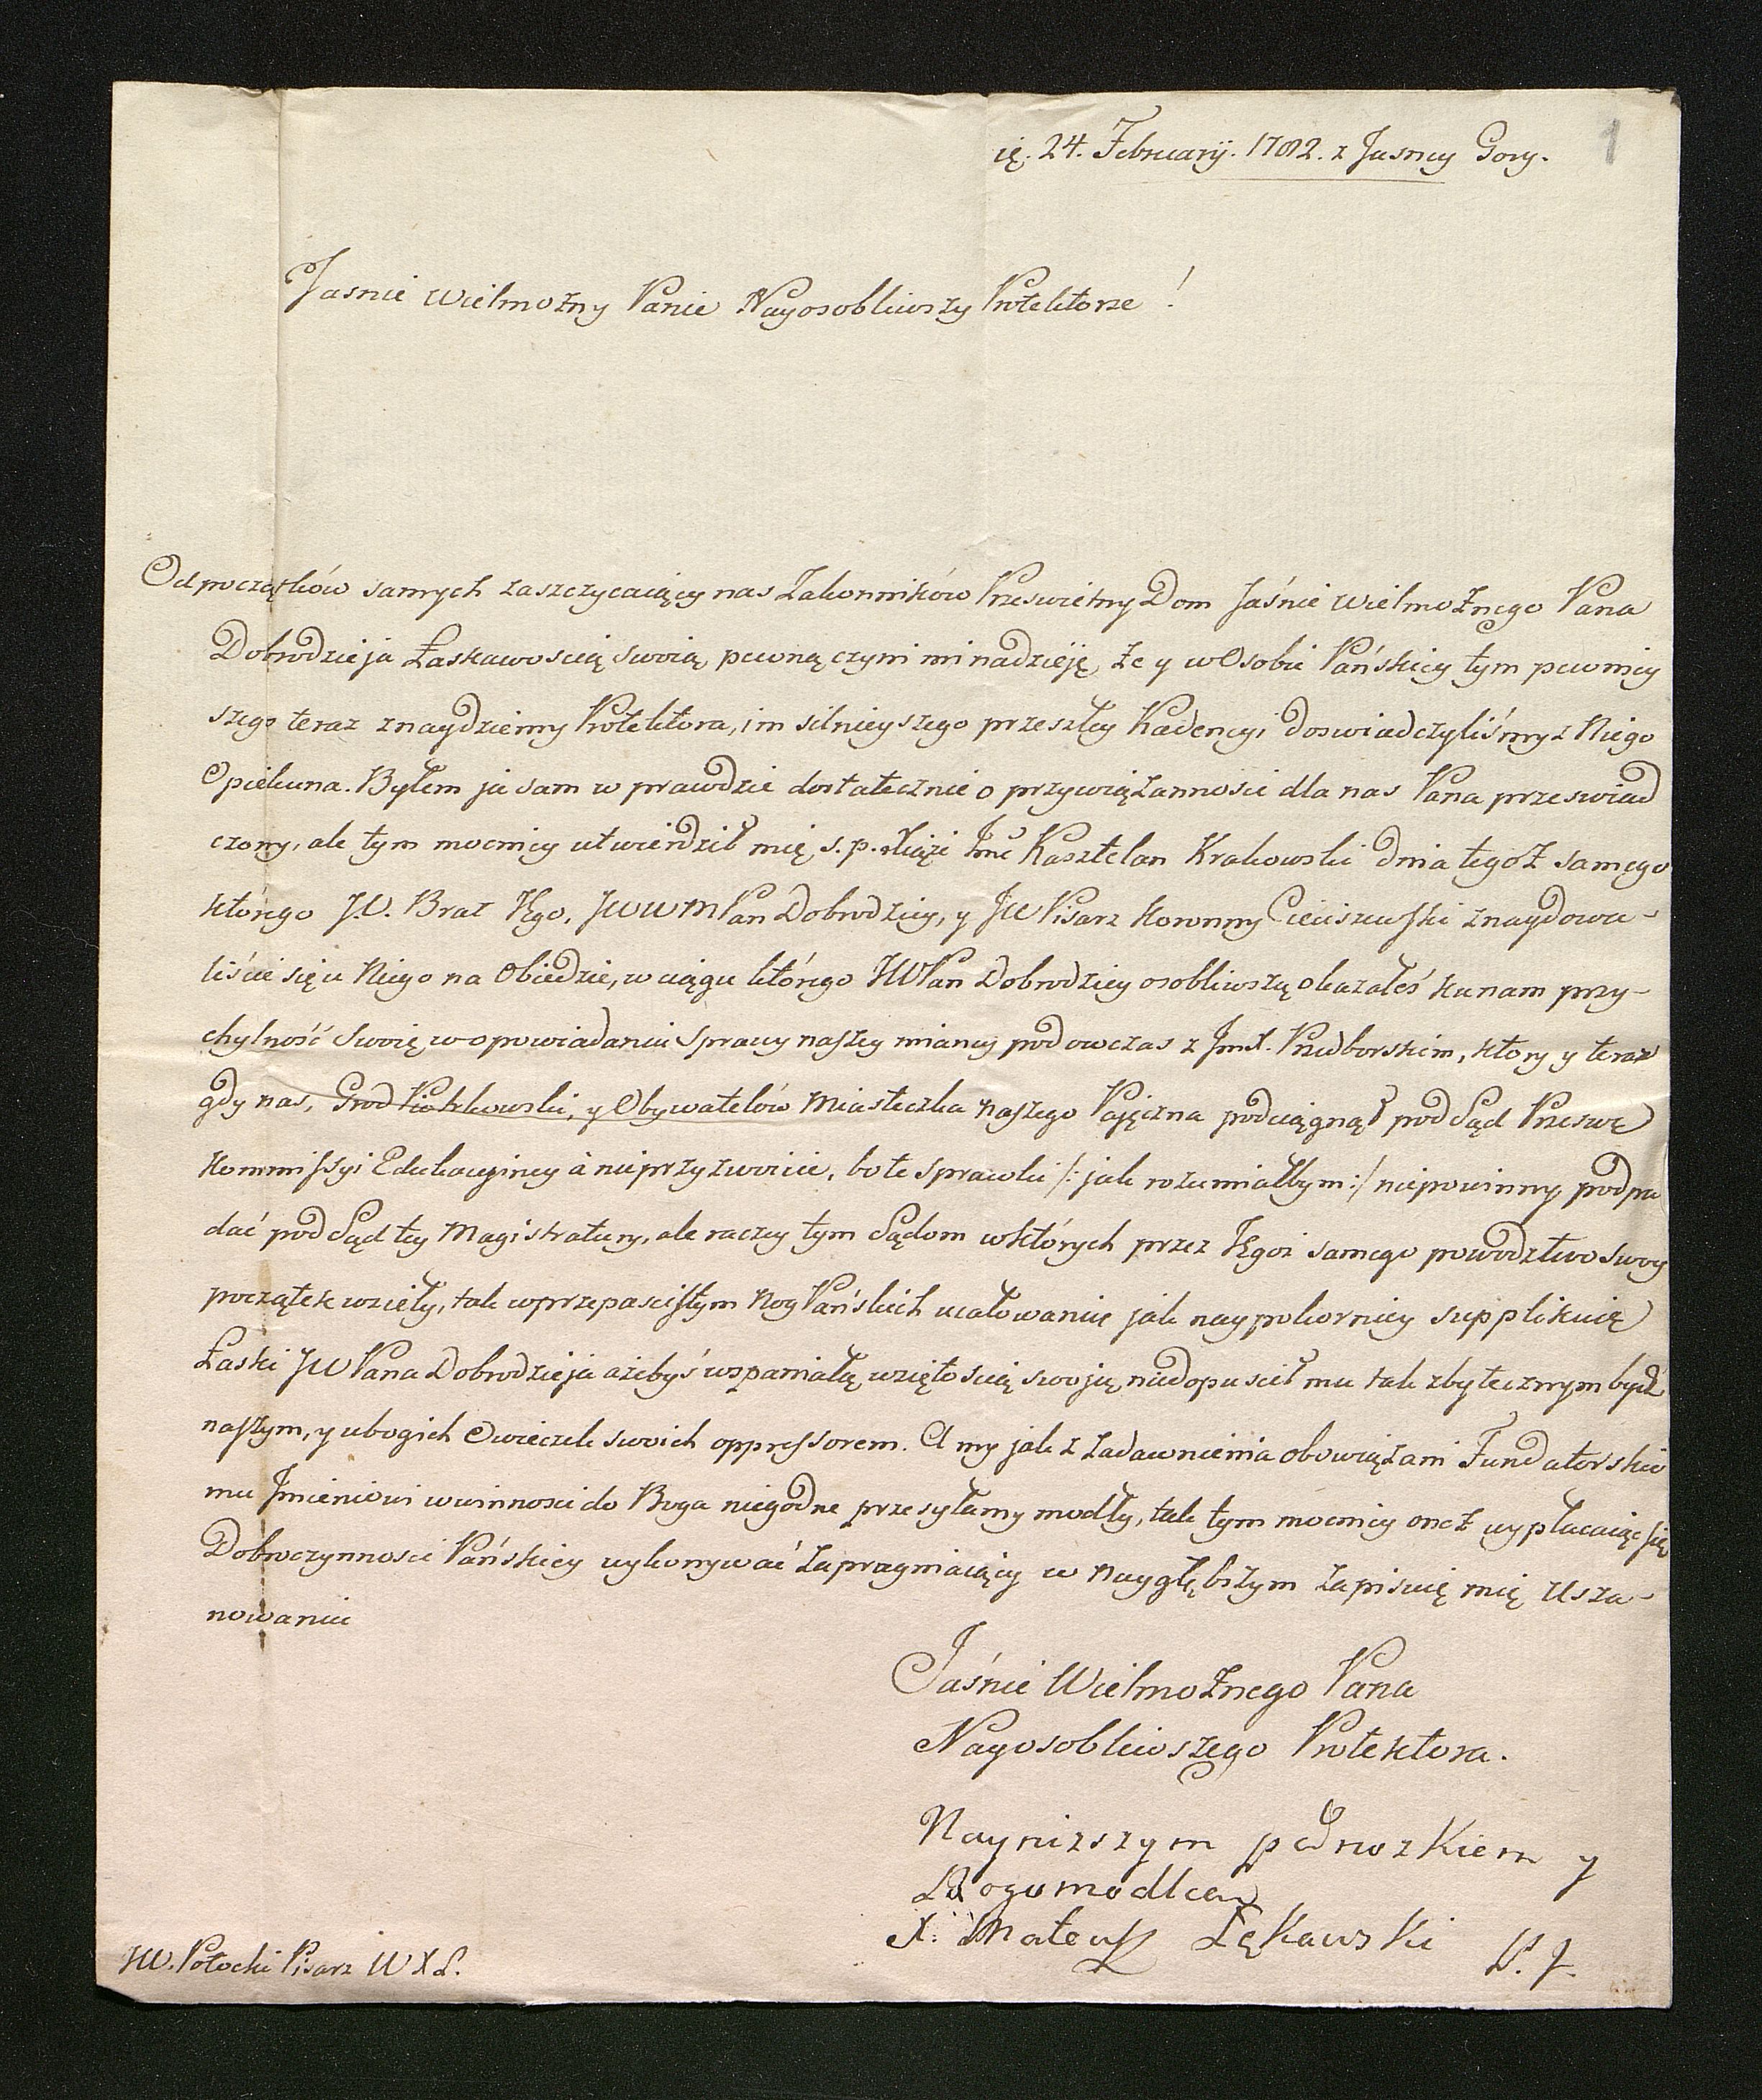 24. Februarij. 1782. z Jasney Gory.
1
Jasnie Wielmożny Panie Nayosobliwszy Protektorze!
Od początków samych zaszczycaiący nas Zakonników Prześwietny Dom Jaśnie Wielmożnego Pana
Dobrodzieja Łaskawoscią swoią pewną czyni mi nadzieję, że y w Osobie Pańskiey tym pewniey
szego teraz znaydziemy Protektora, im silnieyszego przeszłey Kadencyi doswiadczyliśmy z Niego
Opiekuna. Byłem ja sam w prawdzie dostatecznie o przywiązannosci dla nas Pana przeswiad
czony, ale tym mocniey utwierdził mię s. p. Xiąże Jmć Kasztelan Krakowski dnia tegoż samego
którego J.O. Brat Jego, JWWM Pan Dobrodziey, y JW Pisarz Koronny Cieciszewski znaydowa-
liście się u Niego na Obiedzie, w ciągu którego JWPan Dobrodziey osobliwszą okazałeś ku nam przy-
chylność swoię w opowiadaniu sprawy naszey mianey podowczas z JmX. Przedborskim, ktory y teraz
gdy nas, Grod Piotrkowski, y Obywatelów Miasteczka naszego Pajęczna podciągnął pod Sąd Przeswę
Kommissyi Edukacyiney à nieprzyzwoicie, bo te sprawki /: jak rozumiałbym :/ niepowinny podpa
dać pod Sąd tey Magistratury, ale raczey tym Sądom w których przez Jegoż samego powodztwo swoy
początek wzieły, tak w przepascistym Nog Pańskich ucałowaniu jak naypokorniey supplikuię
Łaski JWPana Dobrodzieja ażebyś wspaniałą wziętoscią swoją niedopuscił mu tak zbytecznym bydź
naszym, y ubogich Owieczek swoich oppressorem. A my jak z zadawnienia obowiązani Fundatorskie
mu Jmieniowi w winnosci do Boga niegodne przesyłamy modły, tak tym mocniey oneż wypłacaiąc się
Dobroczynnosci Pańskiey wykonywać zapragniaiący w naygłębszym zapisuię mię Usza-
nowaniu
Jaśnie Wielmożnego Pana
Nayosobliwszego Protektora.
Nayniższym podnożkiem y
Bogomodlcą
X. Mateusz Łękawski
JW. Potocki Pisarz W X L.